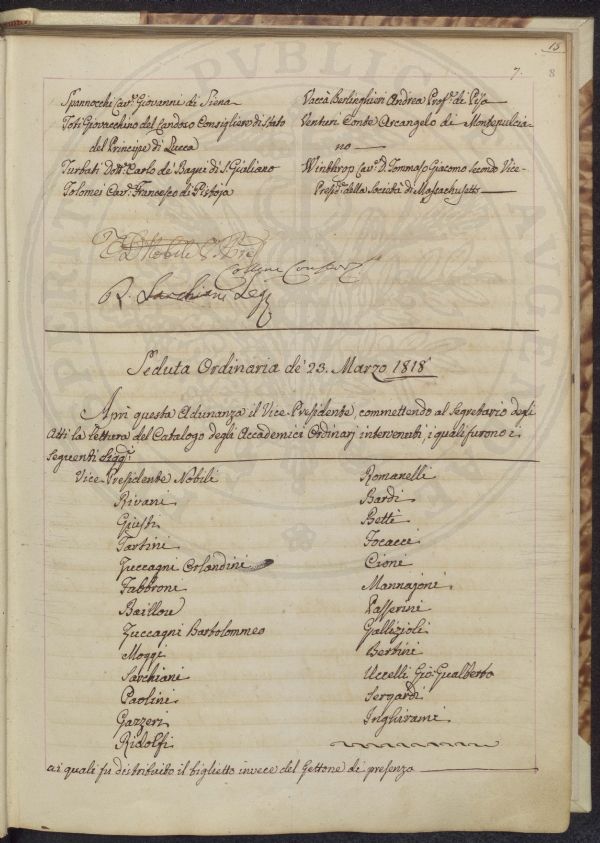 15
7.
8
Spannocchi Cav.r Giovanni di Siena
Toti Giovacchino del Candoso Consigliere di Stato
del Principe di Lucca
Turbati Dott.r Carlo de' Bagni di S. Giuliano
Tolomei Cav.r Francesco di Pistoja
Vaccà Berlinghieri Andrea Prof.r di Pisa
Venturi Conte Arcangelo di Montepulcia-
no
Winthrop Cav.r D. Tommaso Giacomo Secondo Vice-
Presid.te della Società di Massachusetts
Seduta Ordinaria de' 23. Marzo 1818
Aprì questa Adunanza il Vice-Presidente, commettendo al Segretario degli
Atti la lettura del Catalogo degli Accademici Ordinarj intervenuti, i quali furono i
seguenti Sigg.i
Vice-Presidente Nobili
Rivani
Giusti
Tartini
Zuccagni Orlandini
Fabbroni
Baillou
Zuccagni Bartolommeo
Moggi
Sacchiani
Paolini
Gazzeri
Ridolfi
Romanelli
Bardi
Betti
Focacci
Cioni
Mannajoni
Passerini
Gallizioli
Bertini
Uccelli Gio: Gualberto
Sergardi
Inghirami
ai quali fu distribuito il biglietto invece del Gettone di presenza